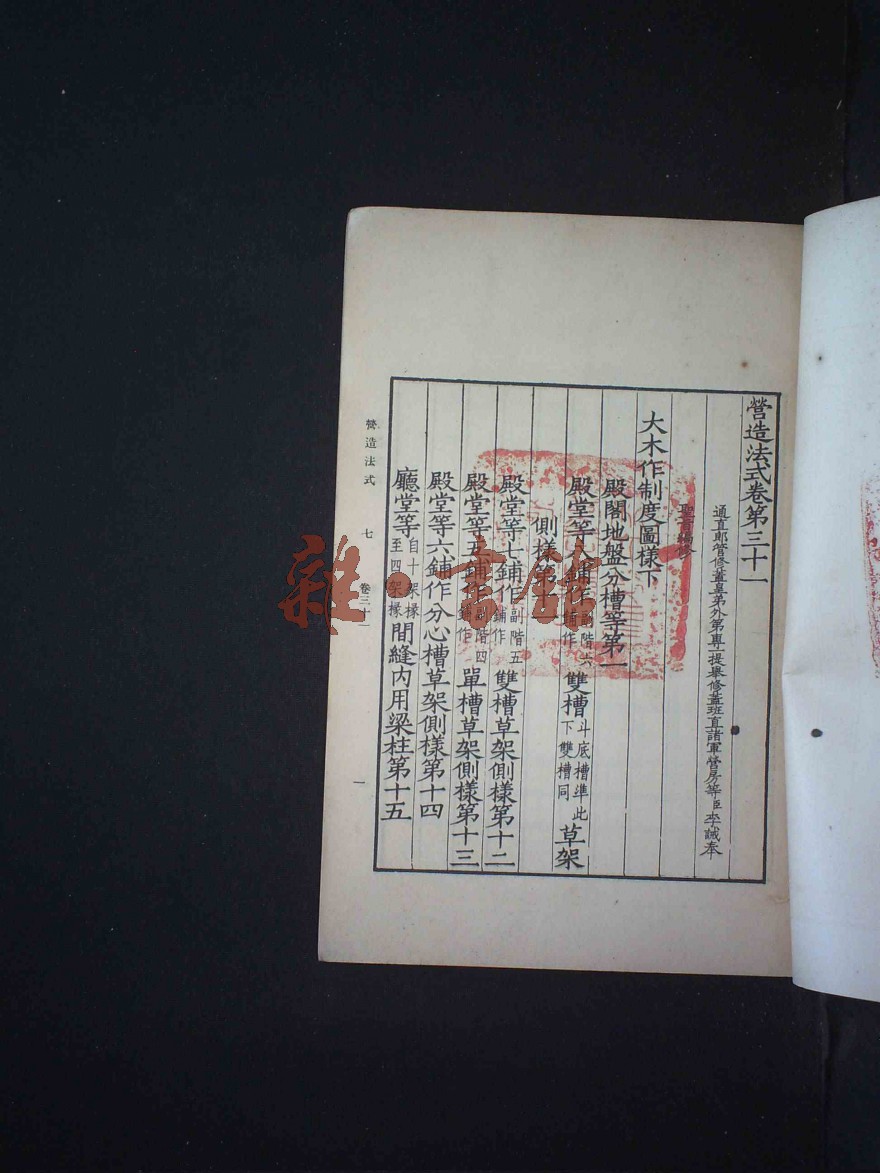 營造法式卷第三十一
通直郎管修蓋皇弟外第專一提舉修蓋班直諸軍營房等臣李誡奉
聖旨編修
大木作制度圖樣下
殿閣地盤分槽等第十
殿堂等八鋪作副階六鋪作雙槽斗底槽準此下雙槽同草架
側樣第十一
殿堂等七鋪作副階五鋪作雙槽草架側樣第十二
殿堂等五鋪作副階四鋪作單槽草架側樣第十三
殿堂等六鋪作分心槽草架側樣第十四
廳堂等自十架椽至四架椽間縫內用梁柱第十五
營造法式 七 卷三十一 一
雜·書館